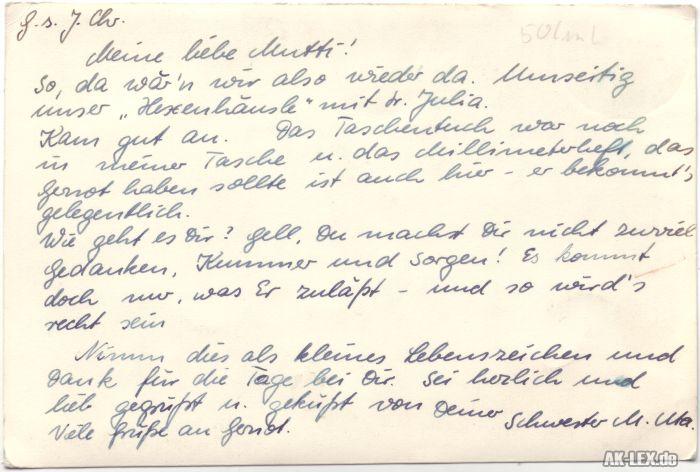 G. s. J. Chr.
Meine liebe Mutti!
So, da wär'n wir also wieder da. Umseitig
unser „Hexenhäusle" mit Sr. Julia.
Kam gut an. Das Taschentuch war noch
in meiner Tasche u. das Millimeterheft, das
Gernot haben sollte ist auch hier - er bekommt's
gelegentlich.
Wie geht es Dir? Gell, Du machst Dir nicht zuviel
Gedanken, Kummer und Sorgen! Es kommt
doch nur, was Er zuläßt - und so wird's
recht sein
Nimm dies als kleines Lebenszeichen und
Dank für die Tage bei Dir. Sei herzlich und
lieb gegrüßt u. geküßt von Deiner
Schwester M. Uta.
Viele Grüße an Gernot.
AK-LEX.de